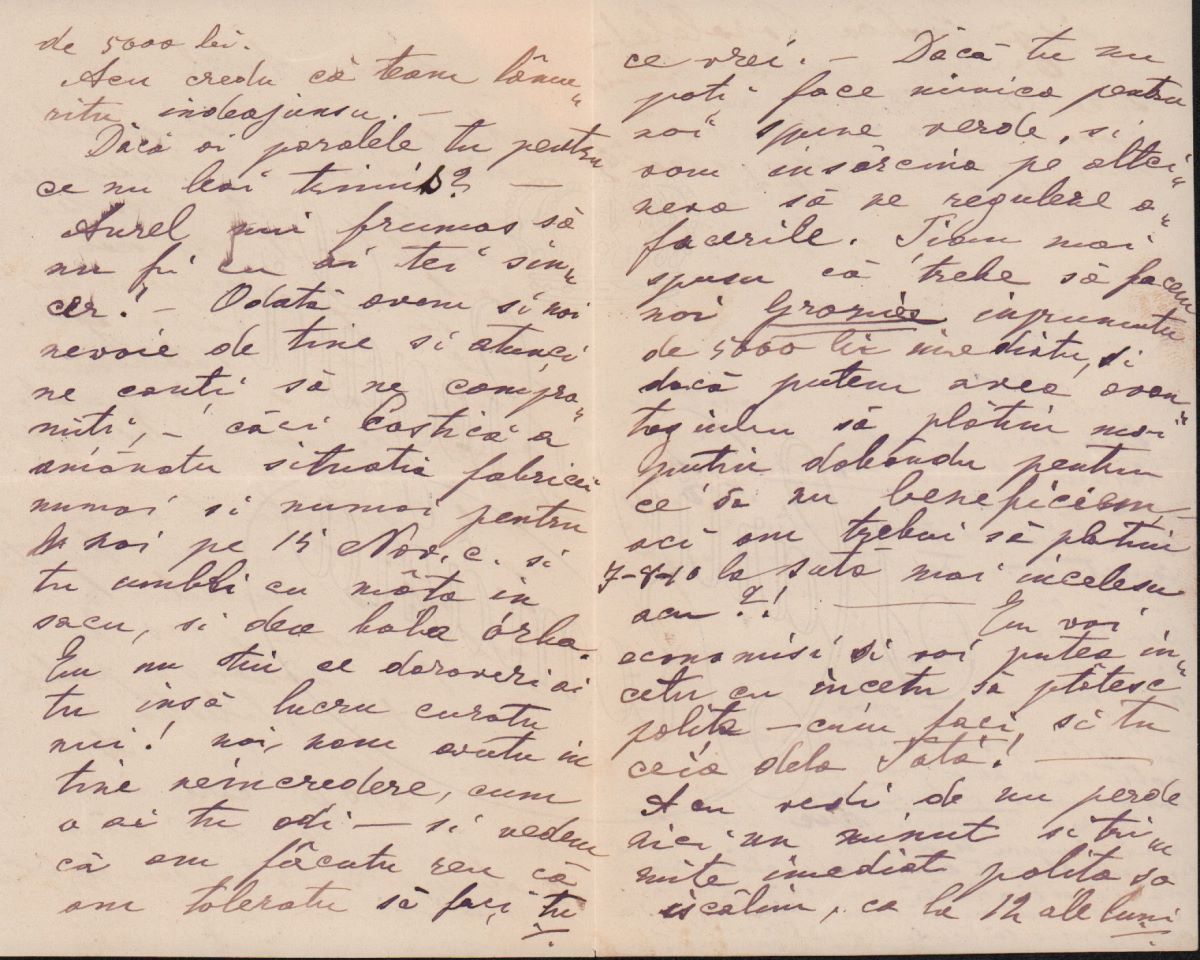 de 5000 lei.
Acu credu că team lămu„
ritu indeajunsu. —
Dăcă ai paralele tu pentru
ce nu leai trimis? —
Aurel nui frumos să
nu fi cu ai tei sin„
cer! — Odată avem si noi
nevoie de tine si atunci
ne cauti să ne compro„
miti, — căci Costică a
amănatu situatia fabricii
numai si numai pentru
noi pe 15 Nov. c. si
tu umbli cu măta in
sacu, si dea baba órba.
Eu nu stiu ce daraveri ai
tu insă lucru curatu
nui! noi, nom avutu in
tine neincredere, cum
o ai tu adi — si vedem
că am făcutu reu că
am toleratu să faci tu
ce vrei. — Dăcă tu nu
poti face nimica pentru
noi spune verde, si
vom insărcina pe altci„
neva să ne reguleze a„
facerile. Tiam mai
spusu că trebe să facem
noi inprumutu
de 5000 lei imediatu, si
dacă putem avea avan„
tagiulu să plătim mai
putin dobăndu pentru
ce să nu beneficiem —
aci am trebui să platim
7-8-10 la sută mai incelesu
acu ?! — Eu voi
economisi si voi putea in„
cetu cu incetu să plătesc
polita — cum faci si tu
ceia dela Tată! —
Acu vedi de nu perde
nici un minut si tri„
mite imediat polita so
iscălim, ca la 12 ale luni